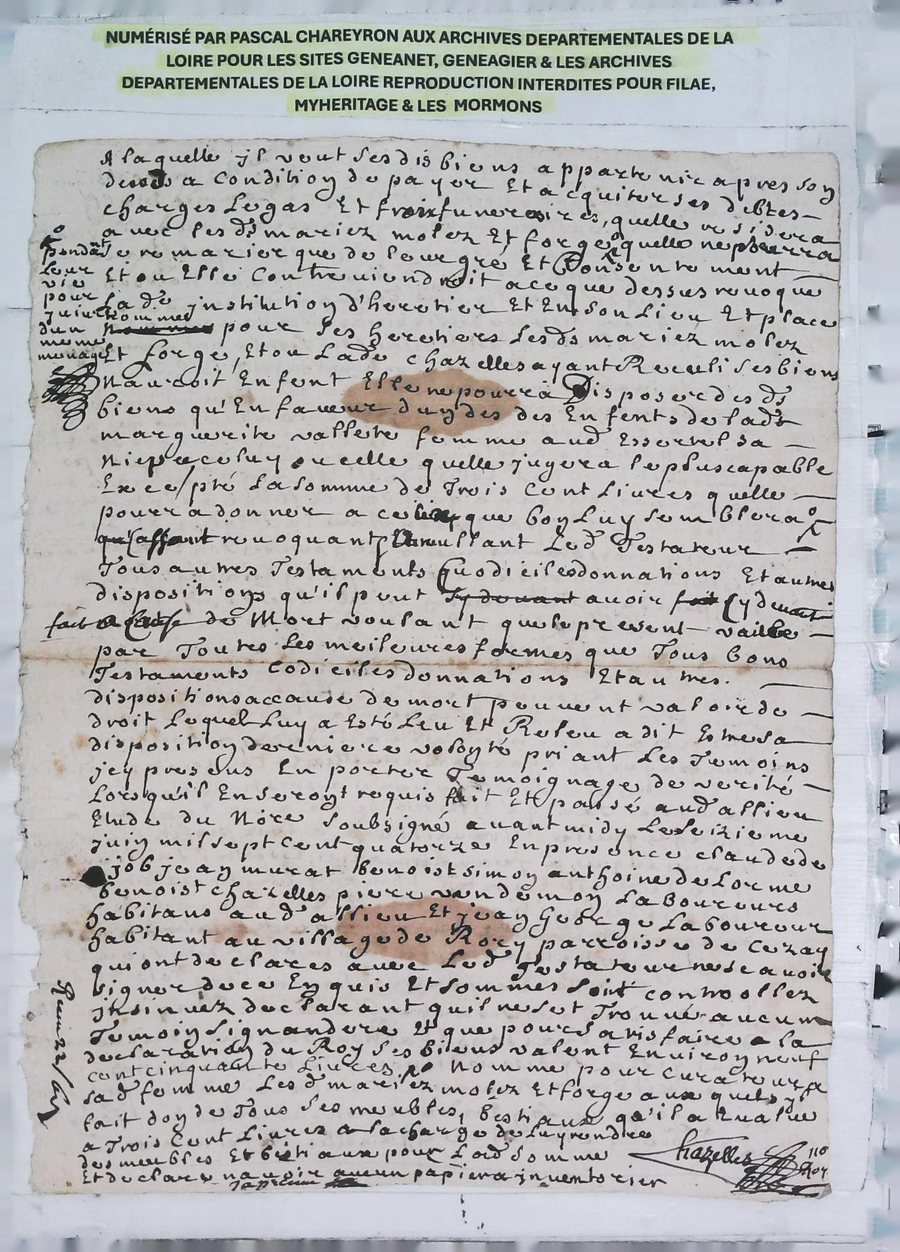 NUMÉRISÉ PAR PASCAL CHAREYRON AUX ARCHIVES DEPARTEMENTALES DE LA
LOIRE POUR LES SITES GENEANET, GENEAGIER & LES ARCHIVES
DEPARTEMENTALES DE LA LOIRE REPRODUCTION INTERDITES POUR FILAE,
MYHERITAGE & LES MORMONS
A laquelle jl veut ses dis biens appartenir apres son
deceds a Condition de payer Et acquiter ses debtes
charges Legas Et frais funeraires, quelle residera
avec lesds mariez molez Et forge quelle ne pourra
se remarier que de leur gré Et Consentement
Et ou Elle Contreviendroit a ce que dessus revoque
lade jnstitution d'heretier Et En son Lieu Et place
nomme pour ses heretiers lesds mariez molez
Et forge, Et ou Lade chazelles ayant Receuli ses biens
Nauroit Enfent Elle ne pourra Disposer desds
biens qu'En faveur dun des Enfents de lade
marguerite vallete femme aud Essertel sa
Niepce celuy ou celle quelle jugera le plus capable
Excepté La somme de Trois Cent Livres quelle
pourra donner a celuy que bon Luy semblera
revoquant Led Testateur
Tous autres Testaments Codiciles donnations Et autres
dispositions qu'il peut avoir Cy devant
fait a Cause de Mort voulant que le present vaille
par Toutes Les meileures formes que Tous bons
Testaments Codiciles donnations Et autres
dispositions a cause de mort peuvent valoir de
droit Lequel Luy a Esté Leu Et Releu a dit Estre sa
disposition derniere volonté priant Les Temoins
jcy presens En porter Temoignage de verité
Lors qu'il En seront requis fait Et passé aud allieu
Etude du Nore soubsigné avant midy Le seizieme
juin mil sept Cent quatorze En presence claude de
job jean murat benoist simon anthoine de Lorme
benoist chazelles pierre vendemon Laboureurs
habitans aud allieu Et jean George Laboureur
habitant au village de Rory parroisse de Cezay
qui ont declares avec Led Testateur ne scavoir
signer de ce Enquis Et sommes soit controollez
jnsinuez declarant qu'il ne set Trouvé aucun
Temoin signandere Et que pour satisfaire a la
declaration du Roy ses biens valent Environ neuf
cent cinquante Livres, nomme pour curateurs
sad femme Les ds mariez molez Et forge aux quels jl
fait don de Tous ses meubles, bestiaux qu'il a Evalué
a Trois Cent Livres a la charge de Luy rendre
des meubles Et bestiaux pour Lad somme
Et declare navoir aucun papier a jnventorier
Chazelles
Nore
Roy
pendant
Leur
vie
pour
dun
meme
menage